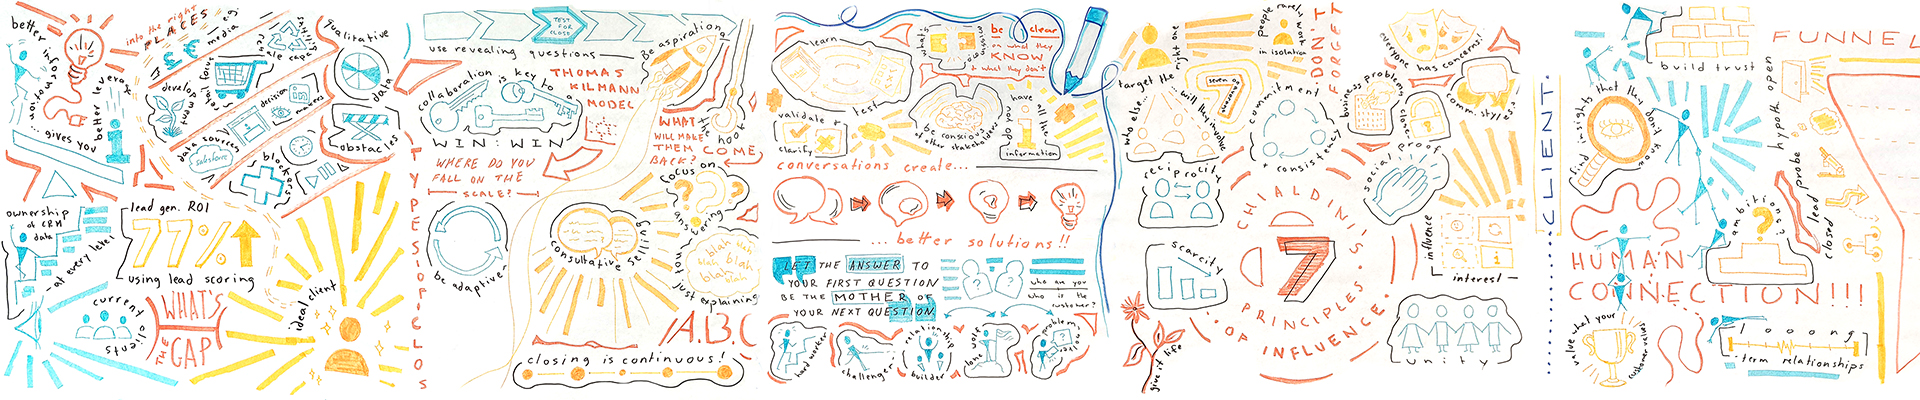 better information
... gives you
better leverage
into the right
PLACES
e.g.
media
develop
trust
social focus
recycle
qualitative
data
data sources
salesforce
decision
makers
obstacles
blockers
ownership
of CRM
data
- at every level
lead gen. ROI
77%
using lead scoring
current
clients
WHAT'S
THE
GAP
ideal client
TEST
FOR
CLOSE
use revealing questions
collaboration is key to a
WIN:WIN
THOMAS
KILMANN
MODEL
WHERE DO YOU
FALL ON THE
SCALE?
be adaptive
TYPES OF CLOSE
Be aspirational
WHAT
WILL MAKE
THEM COME
BACK?
the hook
focus on
answering
blah blah
blah blah
blah
blah
not just explaining
consultative selling
A.B.C
closing is continuous!
learn
test
validate +
clarify
what's
missing
be clear
on what they
KNOW
+ what they don't
be conscious
of other stakeholders
do you
have all the
information
conversations create...
... better solutions!!
LET THE ANSWER TO
YOUR FIRST QUESTION
BE THE MOTHER OF
YOUR NEXT QUESTION.
who are you
who is the
customer?
hard worker
challenger
relationship
builder
lone wolf
problem
solver
target the right one
people rarely work
in isolation
DON'T
FORGET
who else...
... will they involve
seven on
7
commitment
+ consistency
reciprocity
scarcity
give it life
CHIALDINI'S
7
PRINCIPLES
OF INFLUENCE.
everyone has concerns!!
business problems
close
comm. styles
social proof
influence
interest
unity
CLIENT.
build trust
find insights that they don't know
HUMAN
CONNECTION!!!
value what your
customers value
ambitions
hypoth open
lead probe
closed
looong
-term relationships
FUNNEL